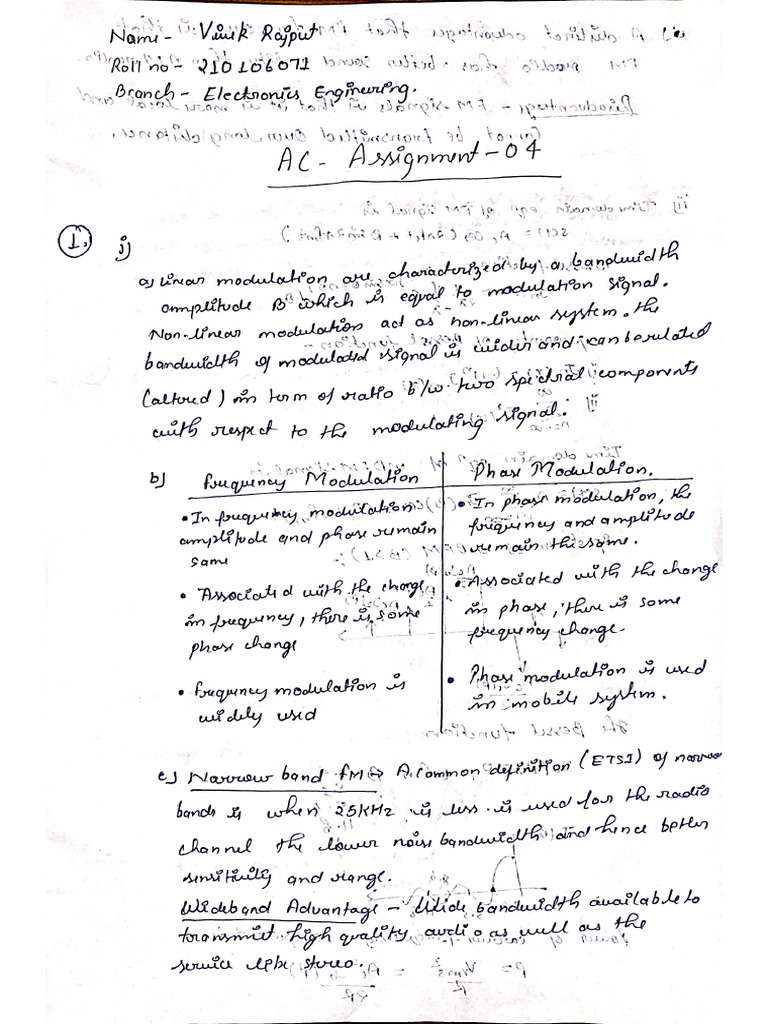 Name - Vivek Rajput
Roll no - 210106071
Branch - Electronics Engineering.
AC - Assignment - 04
1. i)
a) Linear modulation are characterized by a bandwidth
amplitude B which is equal to modulation signal.
Non-linear modulation act as non-linear system. the
bandwidth of modulated signal is wider and can be related
(altered) in term of ratio b/w two spectral components
with respect to the modulating signal.
b) Frequency Modulation Phase Modulation.
• In frequency modulation amplitude and phase remain same
• Associated with the change in frequency, there is some phase change
• Frequency modulation is widely used
• In phase modulation, the frequency and amplitude remain the same.
• Associated with the change in phase, there is some frequency change.
• Phase modulation is used in mobile system.
c) Narrow band FM → A common definition (ETSI) of narrow
bands is when 25KHz is less is used for the radio
channel the lower noise bandwidth and hence better
sensitivity and range.
Wideband Advantage - Wide bandwidth available to
transmit high quality audio as well as the
service like stereo.